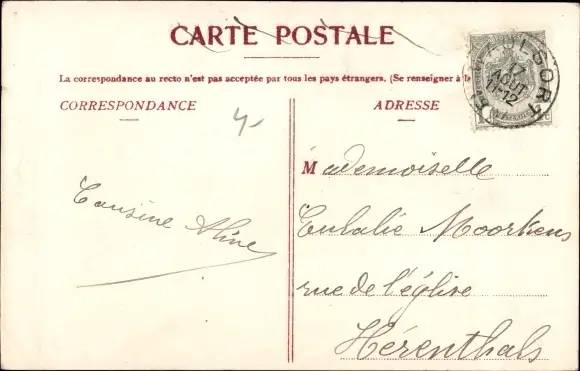 CARTE POSTALE
La correspondance au recto n'est pas acceptée par tous les pays étrangers. (Se renseigner à la
CORRESPONDANCE
ADRESSE
4-
Mademoiselle
Eulalie Moorkens
rue de l'église
Hérenthals
Cousine Aline
17
AOUT
11-12